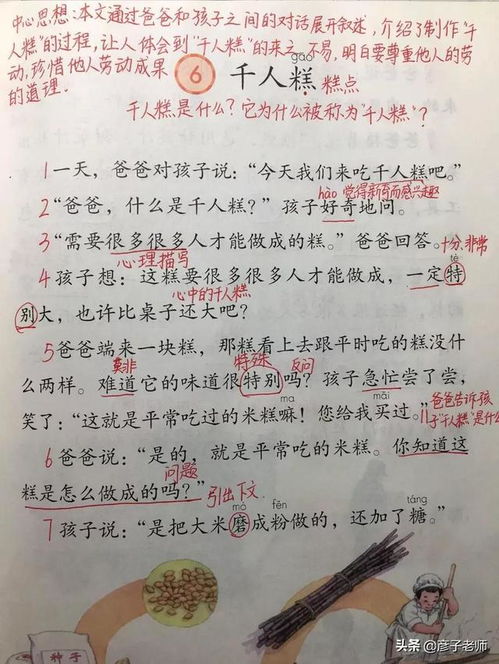 中心思想:本文通过爸爸和孩子之间的对话展开叙述,介绍了制作“千
人糕”的过程,让人体会到“千人糕”的来之不易,明白要尊重他人的劳
动,珍惜他人劳动成果
的道理.
gāo
6 千人糕 糕点
千人糕是什么?它为什么被称为“千人糕”?
1一天,爸爸对孩子说:“今天我们来吃千人糕吧。”
hào 觉得新奇而感兴趣
2“爸爸,什么是千人糕?”孩子好奇地问。
3“需要很多很多人才能做成的糕。”爸爸回答。十分、非常
心理描写
tè
4孩子想:这糕要很多很多人才能做成,一定特
心中的千人糕
别大,也许比桌子还大吧?
5爸爸端来一块糕,那糕看上去跟平时吃的糕没什
莫非 特殊 反问
么两样。难道它的味道很特别吗?孩子急忙尝了尝,
ma mǎi 爸爸告诉孩
笑了:“这就是平常吃过的米糕嘛!您给我买过。”子“千人糕”是什么
6爸爸说:“是的,就是平常吃的米糕。你知道这
问题
糕是怎么做成的吗?”引出下文
mò fěn táng
7孩子说:“是把大米磨成粉做的,还加了糖。”
种子
头条 @彦子老师